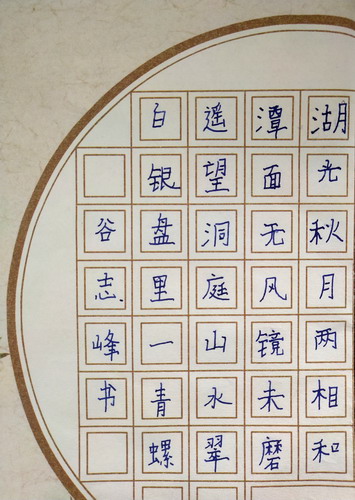 湖光秋月两相和
潭面无风镜未磨
遥望洞庭山水翠
白银盘里一青螺
谷志峰书